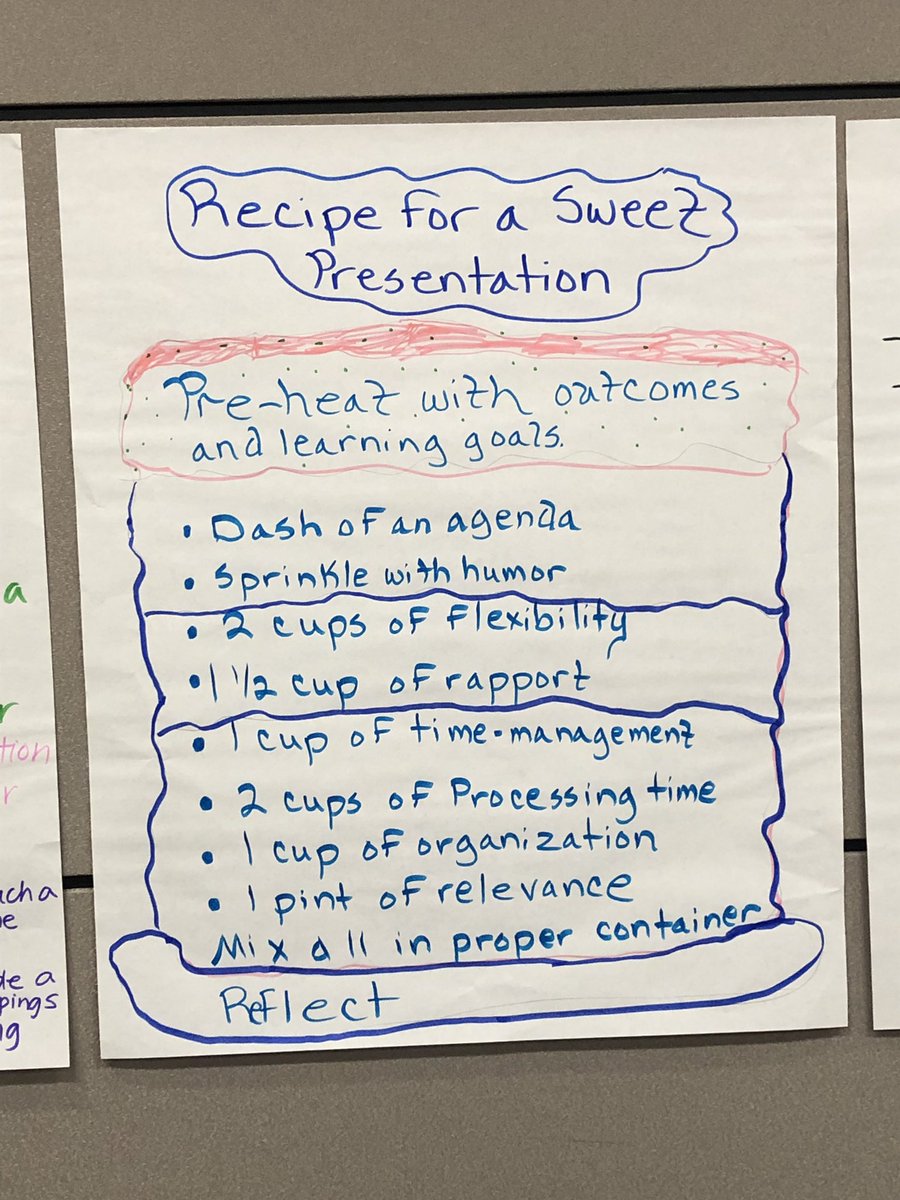 Recipe for a Sweet
Presentation
Pre-heat with outcomes
and learning goals.
• Dash of an agenda
• Sprinkle with humor
• 2 cups of flexibility
• 1 1/2 cup of rapport
• 1 cup of time-management
• 2 cups of Processing time
• 1 cup of organization
• 1 pint of relevance
Mix all in proper container
Reflect
a